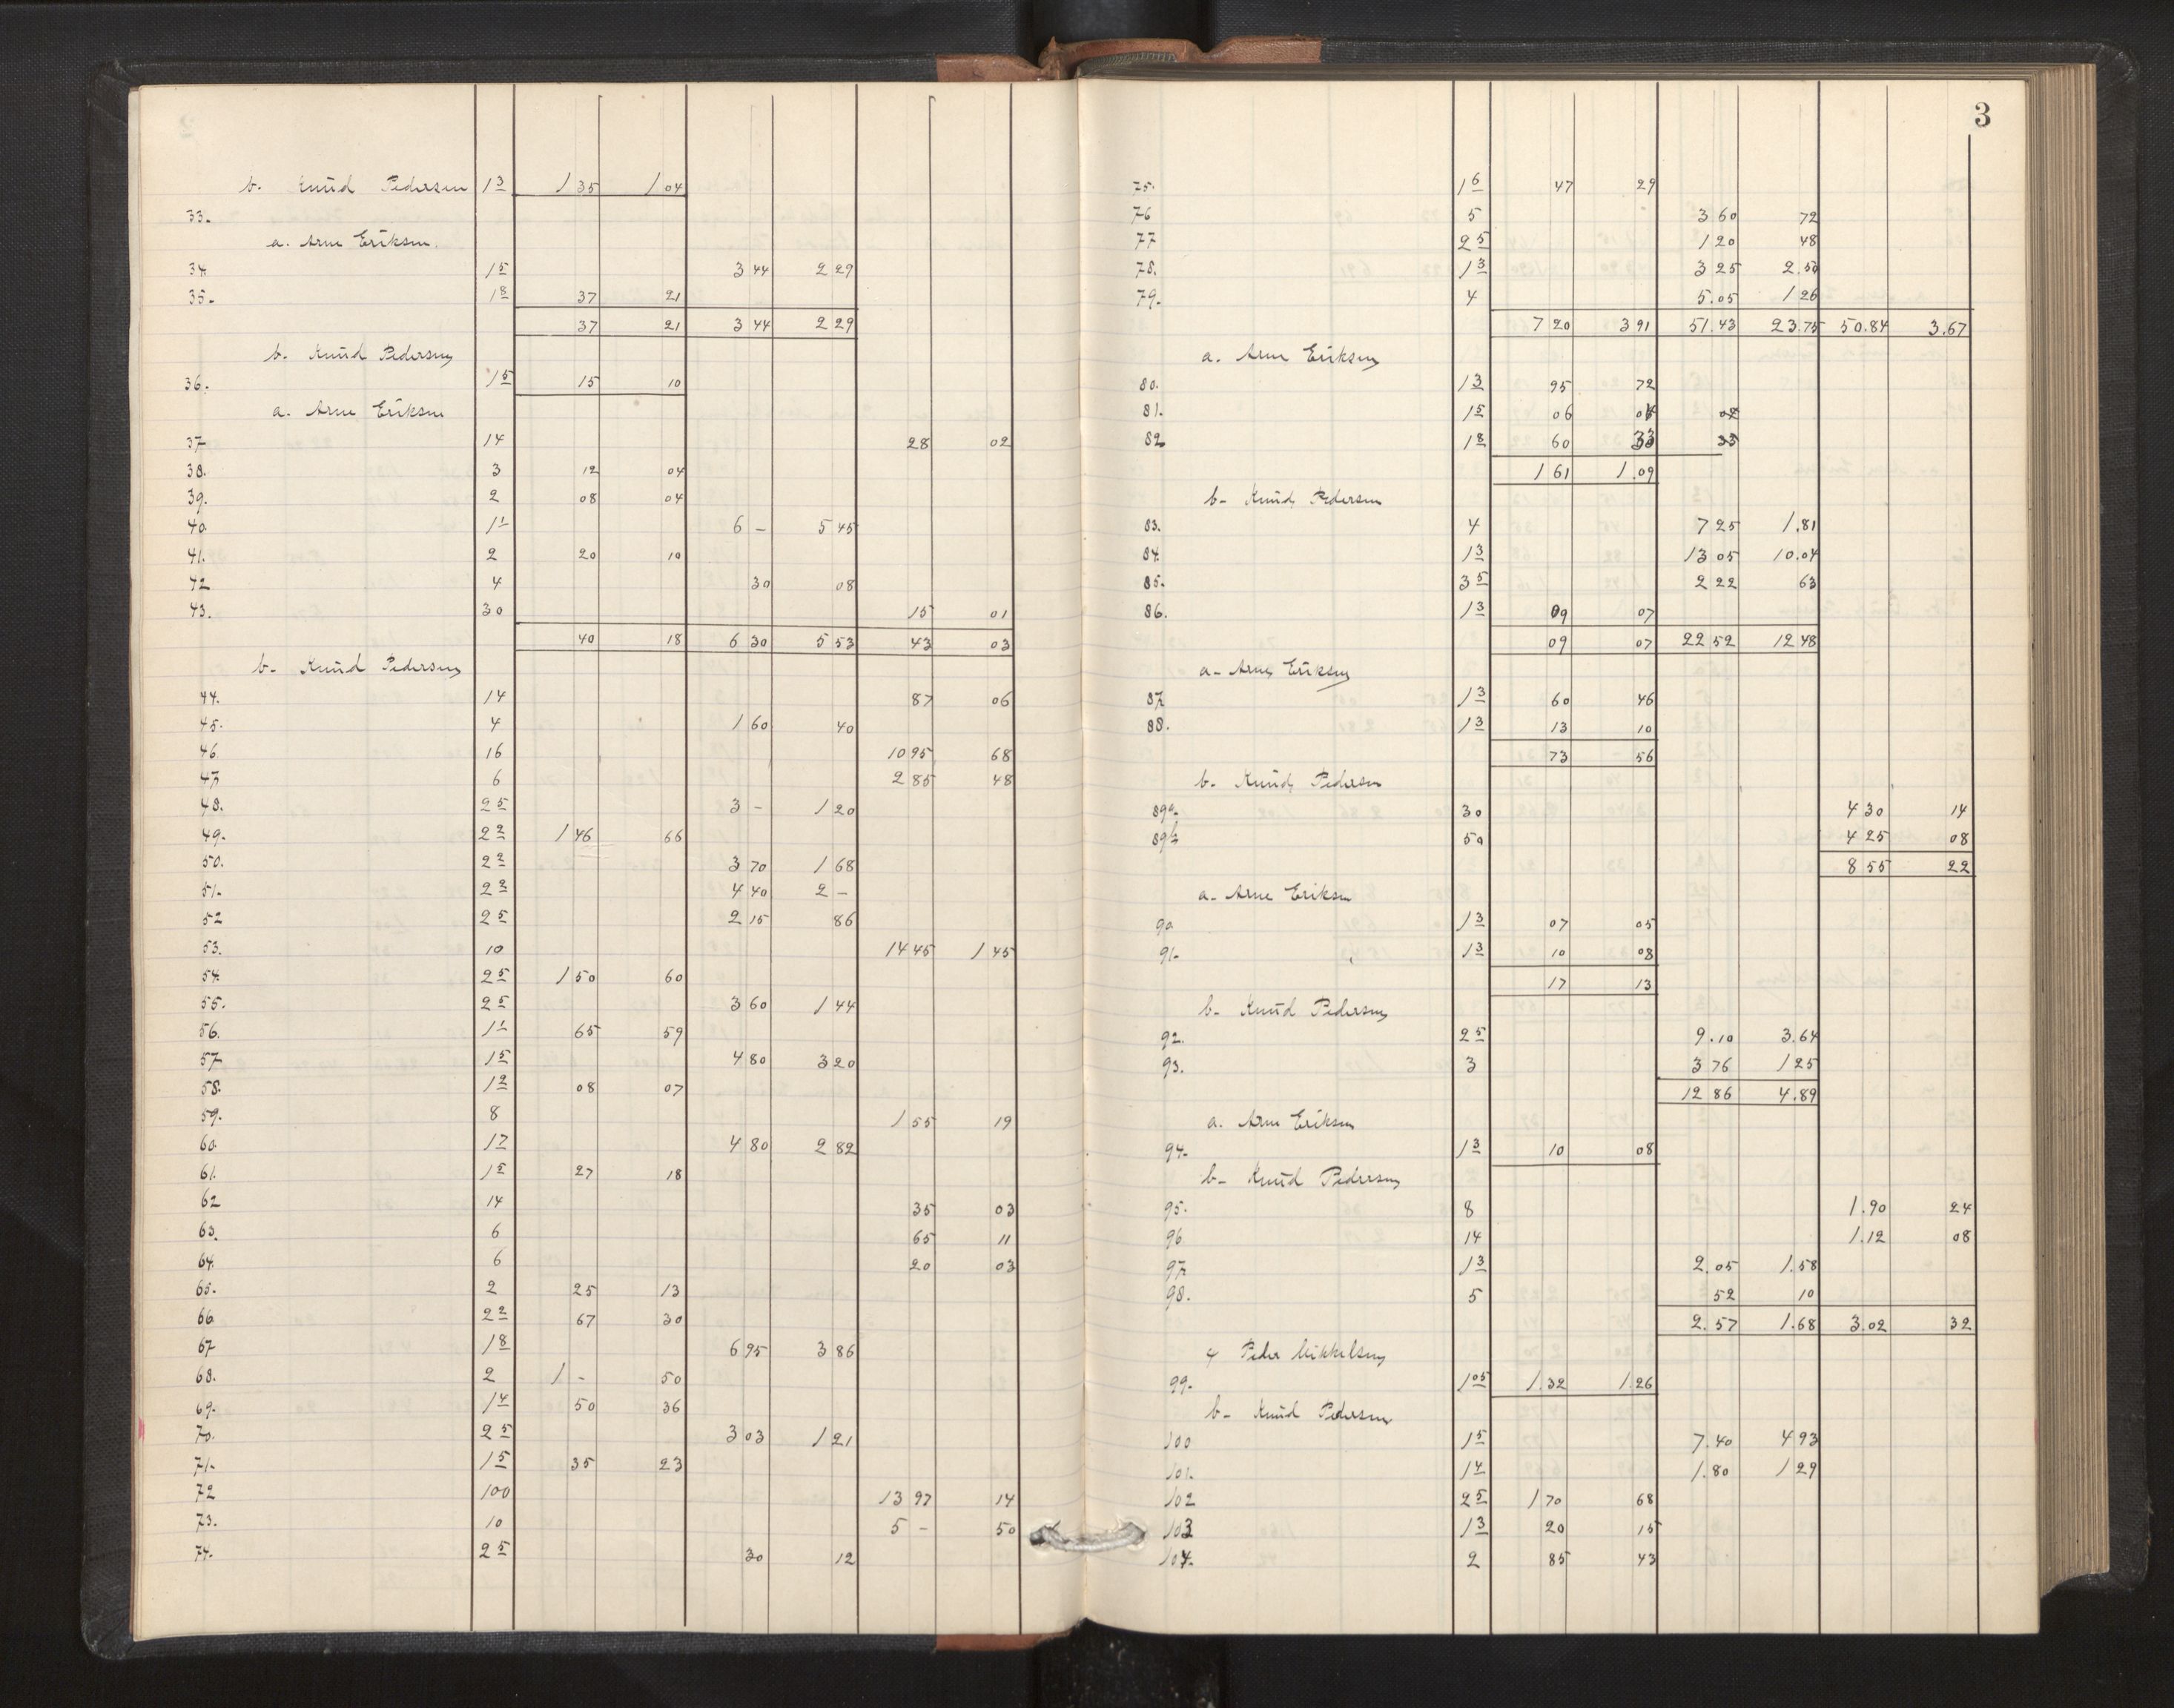 b. Knud Pedersen 1 3 1 35 1 04
33.
a. Arne Eriksen.
34. 1 5 3 44 2 29
35. 1 8 37 21
37 21 3 44 2 29
b. Knud Pedersen
36. 1 5 15 10
a. Arne Eriksen
37 14 28 02
38. 3 12 04
39. 2 08 04
40. 1 1 6 - 5 45
41. 2 20 10
42 4 30 08
43. 30 15 01
40 18 6 30 5 53 43 03
b. Knud Pedersen
44. 14 87 06
45. 4 1 60 40
46 16 10 95 68
47. 6 2 85 48
48. 2 5 3 - 1 20
49. 2 2 1 46 66
50. 2 2 3 70 1 68
51. 2 2 4 40 2 -
52 2 5 2 15 86
53. 10 14 45 1 45
54. 2 5 1 50 60
55. 2 5 3 60 1 44
56. 1 1 65 59
57. 1 5 4 80 3 20
58. 1 2 08 07
59. 8 1 55 19
60. 1 7 4 80 2 82
61. 1 5 27 18
62 14 35 03
63. 6 65 11
64. 6 20 03
65. 2 25 13
66. 2 2 67 30
67 1 8 6 95 3 86
68. 2 1 - 50
69. 1 4 50 36
70. 2 5 3 03 1 21
71. 1 5 35 23
72 100 13 97 14
73. 10 5 - 50
74. 2 5 30 12
3
75. 1 6 47 29
76 5 3 60 72
77 2 5 1 20 48
78. 1 3 3 25 2.50
79. 4 5.05 1 26
7 20 3 91 51.43 23.75 50.84 3.67
a. Arne Eriksen
80. 1 3 95 72
81. 1 5 06 04
82. 1 8 60 33 33
1 61 1.09
b. Knud Pedersen
83. 4 7 25 1.81
84. 1 3 13 05 10.04
85. 3 5 2 22 63
86. 1 3 09 07
09 07 22 52 12 48
a. Arne Eriksen
87. 1 3 60 46
88. 1 3 13 10
73 56
b. Knud Pedersen
89a. 30 4 30 14
89b 50 4 25 08
8 55 22
a. Arne Eriksen
90. 1 3 07 05
91. 1 3 10 08
17 13
b. Knud Pedersen
92. 2 5 9.10 3.64
93. 3 3 76 1 25
12 86 4.89
a. Arne Eriksen
94. 1 3 10 08
b. Knud Pedersen
95. 8 1.90 24
96 14 1.12 08
97. 1 3 2.05 1.58
98. 5 52 10
2.57 1.68 3.02 32
Peder Mikkelsen
99. 1 05 1.32 1.26
b. Knud Pedersen
100 1 5 7.40 4 93
101. 1 4 1.80 1 29
102 2 5 1 70 68
103 1 3 20 15
104. 2 85 43